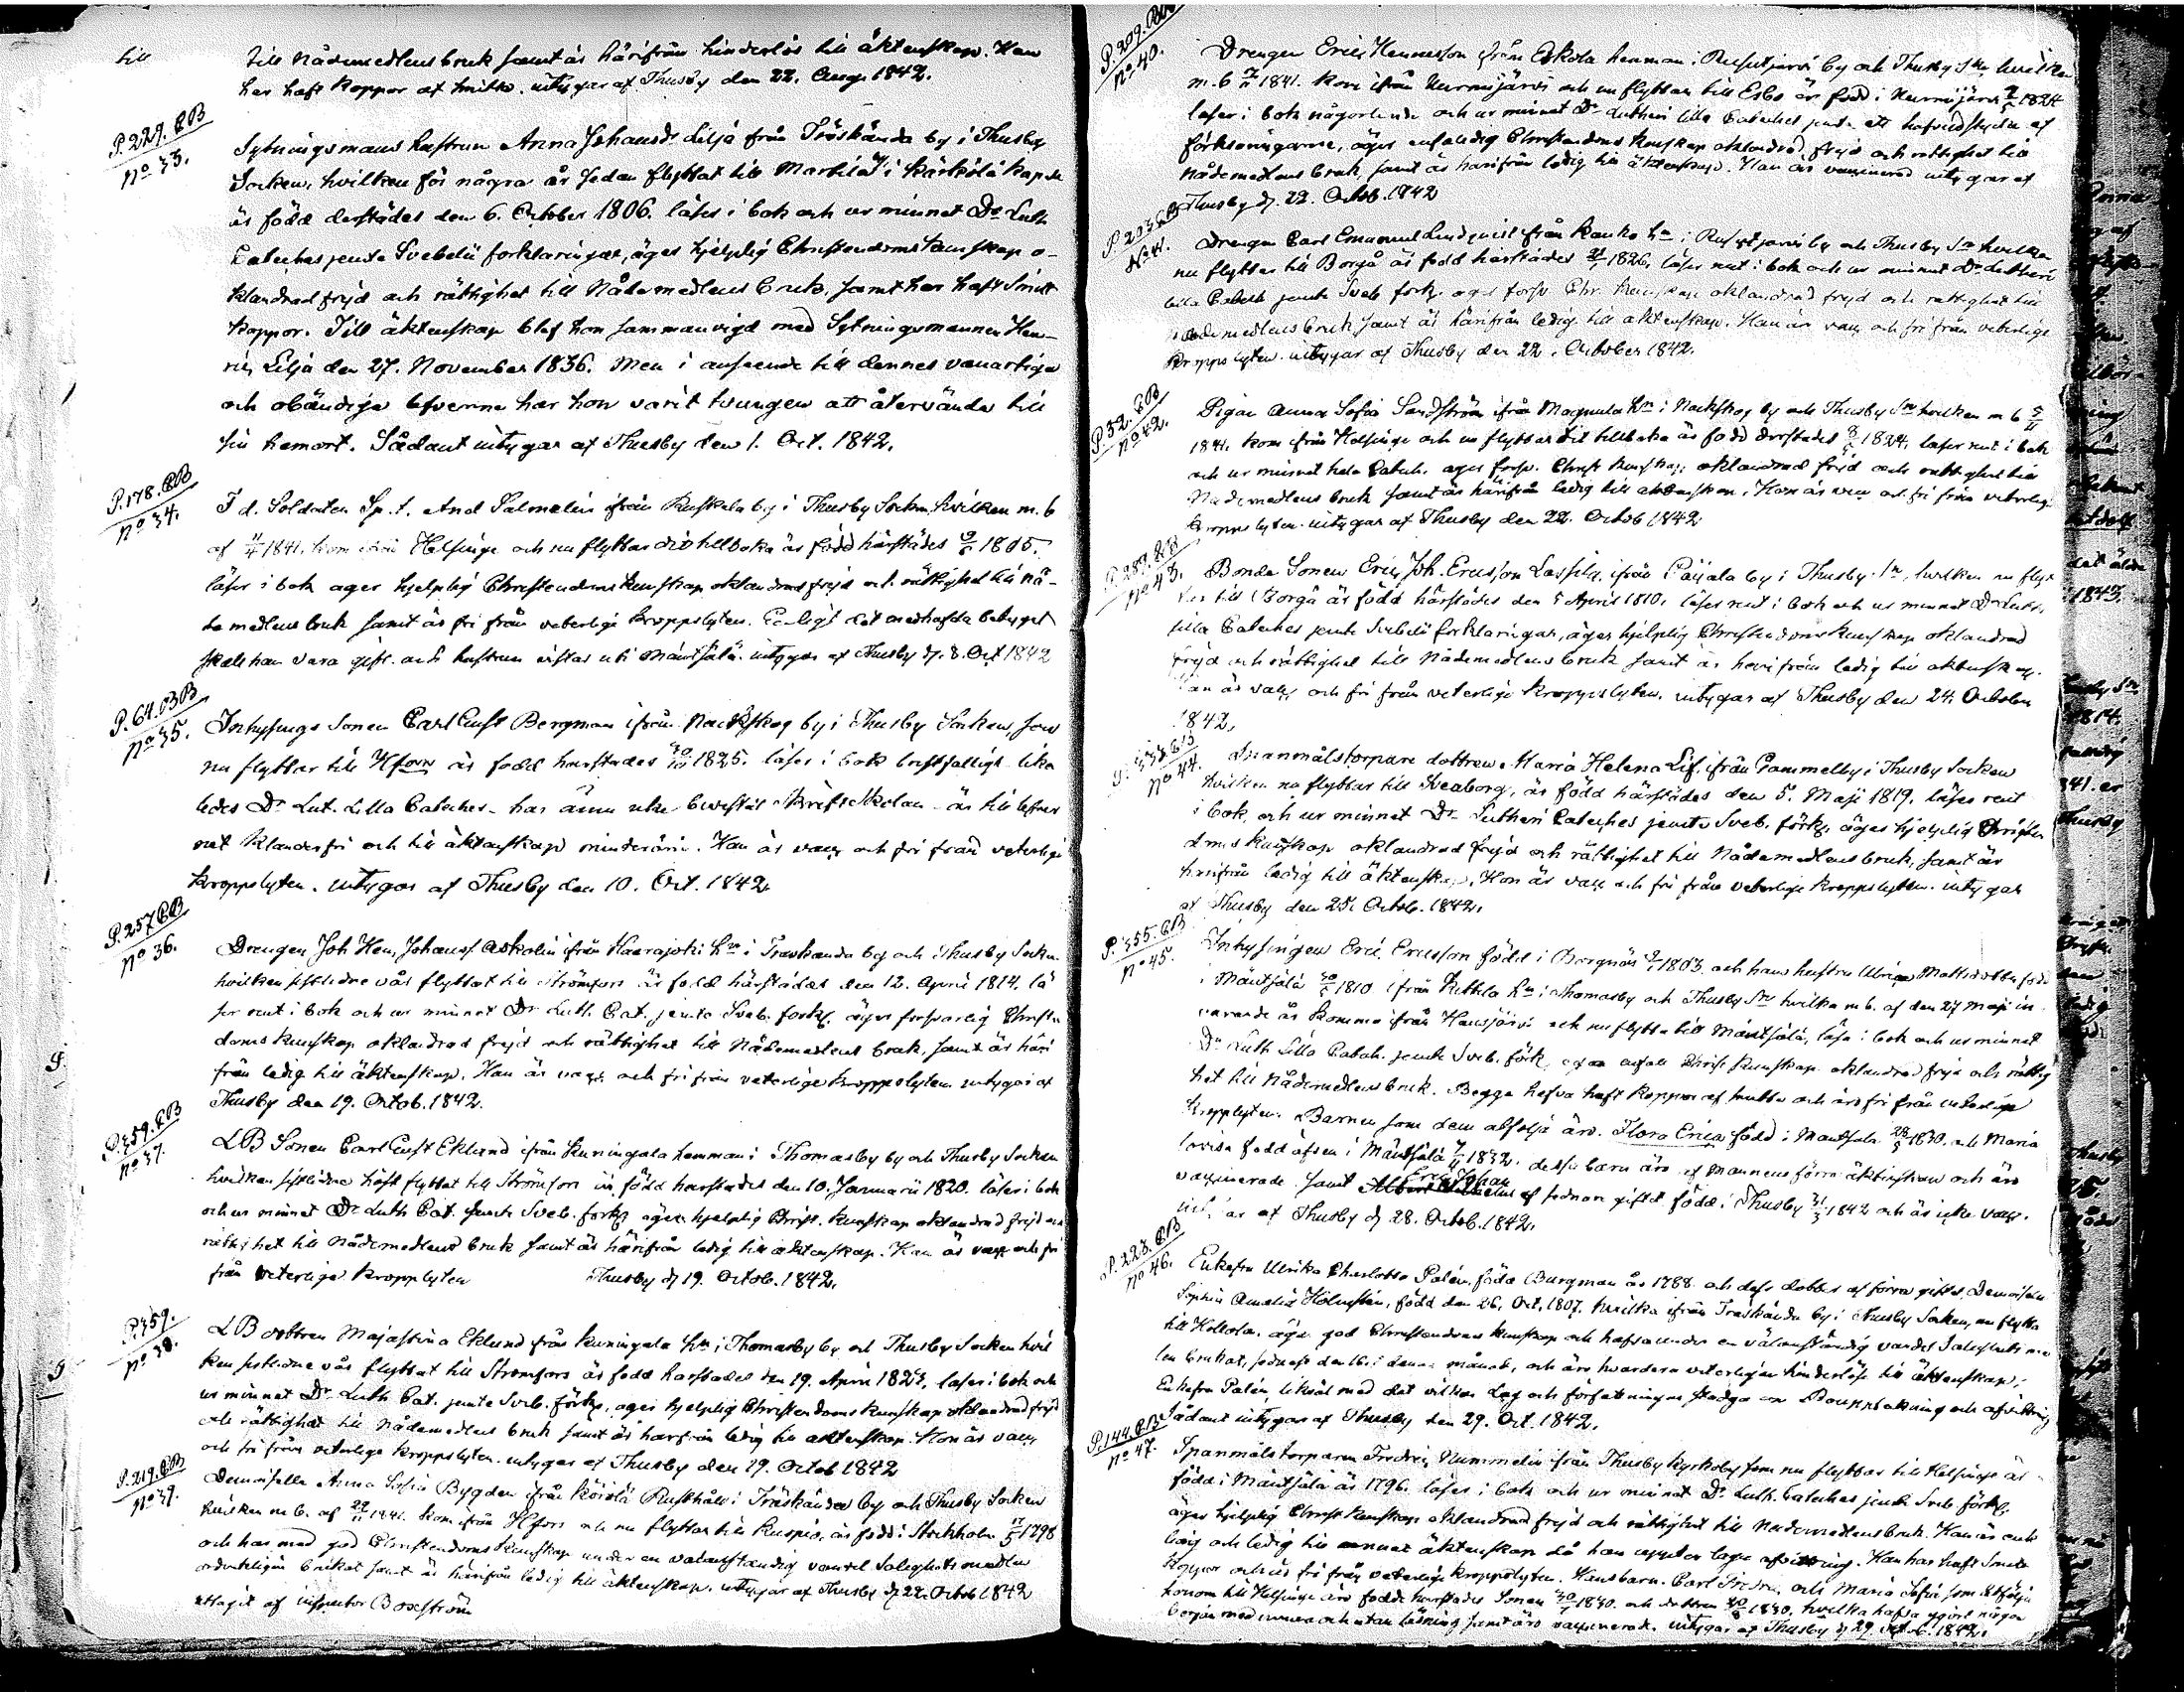 till
till Nådemedlens bruk samt är härifrån hinderlös till äktenskap. Han
har haft koppor af smitto. intygar af Thusby den 22. Aug. 1842.
P. 229. CB
No 33.
Sytningsmans hustrun Anna Johansdr Lilja från Träskända by i Thusby
Socken, hvilken för några år sedan flyttat till Marttila i Kärkölä Capell
är född derstädes den 6. October 1806. läser i bok och ur minnet Dr Luth
Cateches jemte Svebelii forklaringar, äger hjelplig Christendoms kunskap o-
klandrad frejd och rättighet till Nådemedlens bruk, samt har haft Smitt
koppor. Till äktenskap blef hon sammanvigd med Sytningsmannen Hen-
ric Lilja den 27. November 1836. Men i anseende till dennes vanartiga
och obändiga lefverne har hon varit tvungen att återvända till
sin hemort. Sådant intygar af Thusby den 1. Oct. 1842.
P. 178. CB
No 34.
F d. Soldaten And Palmelin ifrån Ruskela by i Thusby Socken, hvilken m. b
af 1841. kom ifrån Helsinge och nu flyttar dit tillbaka är född härstädes 1805.
läser i bok äger hjelplig Christendoms kunskap oklandrad frejd och rättighet till Nå-
demedlens bruk samt är fri från veterliga kroppslyten. Enligt det medhafda betyget
skall han vara gift. och hustrun vistas uti Mäntsälä. intygar af Thusby d. 8. Oct 1842
P. 64. CB
No 35.
Inhysings Sonen Carl Gust Bergman ifrån Nackskog by i Thusby Socken, som
nu flyttar till Hfors är född härstädes 1825. läser i bok bristfälligt lika
ledes Dr Lut. Lilla Cateches - har ännu icke bevistat Skriftskolan - är till lefver
net klanderfri och till äktenskap minderårig. Han är vacc och fri från veterliga
kroppslyten. intygar af Thusby den 10. Oct. 1842.
P. 257 CB
No 36.
Drengen Joh Hen, Johanss Askolin ifrån Haarajoki Hn i Träskända by och Thusby Socken
hvilken sistledne vår flyttat till Strömfors är född härstädes den 12. April 1814. lä
ser rent i bok och ur minnet Dr Luth. Cat. jemte Sveb. förkl. äger försvarlig Christen
doms kunskap oklandrad frejd och rättighet till Nådemedlens bruk, samt är häri
från ledig till äktenskap. Han är vacc och fri från veterliga kroppslyten intygar af
Thusby den 19. Octob. 1842.
P. 359. CB
No 37.
LB Sonen Carl Gust Eklund ifrån Kuningala hemman i Thomasby by och Thusby Socken
hvilken sistledne höst flyttat till Strömfors är född härstädes den 10. Januarii 1820. läser i bok
och ur minnet Dr Luth Cat. jemte Sveb. förkl äger hjelplig Christ. kunskap oklandrad frejd och
rättighet till Nådemedlens bruk samt är härifrån ledig till äktenskap. Han är vacc och fri
från veterliga kroppslyten Thusby d 19. Octob. 1842.
P. 359.
No 38.
LB dottren Maja Stina Eklund från Kuningala Hn i Thomasby by och Thusby Socken hvil
ken sistledne vår flyttat till Strömfors är född härstädes den 19. April 1823. läser i bok och
ur minnet Dr Luth Cat. jemte Sveb. förkl, äger hjelplig Christendoms kunskap oklandrad frejd
och rättighet till Nådemedlens bruk samt är härifrån ledig till äktenskap. Hon är vacc
och fri från veterliga kroppslyten. intygar af Thusby den 19. Octob 1842
P. 219. CB
No 39.
Demoiselle Anna Sofia Bygden ifrån Rusthåll i Träskända by och Thusby Socken
hvilken m. b. af 1841. kom ifrån Hfors och nu flyttar till Kuopio, är född i Stockholm 1798
och har med god Christendoms kunskap under en välanständig vandel Salighets medlen
ordentligen brukat samt är härifrån ledig till äktenskap. intygar af Thusby d 22. Octob 1842
uttagit af inspector Boxström
P. 209. CB
No 40.
Drengen Eric Henricsson ifrån Eskola hemman i Rusutjärvi by och Thusby Sn hvilken
m. b 1841. kom ifrån Nurmijärvi och nu flyttar till Esbo är född i Nurmijärvi 1824
läser i bok någorlunda och ur minnet Dr Lutheri lilla Cateches jemte ett hufvudstycke af
förklaringarne, äger enfaldig Christendoms kunskap oklandrad frejd och rättighet till
Nådemedlens bruk, samt är härifrån ledig till äktenskap. Han är vaccinerad intygar af
Thusby d. 22. Octob. 1842
No 41.
Drengen Carl Emanuel Lindqvist från Hn i Rusutjärvi by och Thusby Sn hvilken
nu flyttar till Borgå är född härstädes 1826, läser rent i bok och ur minnet Dr Lutheri
lilla Catech jemte Sveb förkl. äger försv. Chr. kunskap oklandrad frejd och rättighet till
Nådemedlens bruk samt är härifrån ledig till äktenskap. Han är vacc och fri från veterliga
kroppslyten. intygar af Thusby den 22. October 1842.
P. 32. CB
No 42.
Pigan Anna Sofia Sandström ifrån Magnula Hn i Nackskog by och Thusby Sn hvilken m b
1841. kom ifrån Helsinge och nu flyttar dit tillbaka är född derstädes 1824. läser rent i bok
och ur minnet hela Catech. äger försv. Christ kunskap, oklandrad frejd och rättighet till
Nådemedlens bruk samt är härifrån ledig till äktenskap. Hon är vacc och fri från veterliga
kroppslyten intygar af Thusby den 22. Octob 1842
P. 289. CB
No 43.
Bonde Sonen Eric Joh. Ericsson Lassila, ifrån Paijala by i Thusby Sn, hvilken nu flyt
tar till Borgå är född härstädes den 5 April 1810, läser rent i bok och ur minnet Dr Luth.
lilla Cateches jemte Svebelii forklaringar, äger hjelplig Christendoms kunskap oklandrad
frejd och rättighet till Nådemedlens bruk samt är härifrån ledig till äktenskap.
Han är vacc och fri från veterliga kroppslyten. intygar af Thusby den 24. October
1842.
No 44.
Spanmålstorpare dottren Maria Helena Lif, ifrån Gammelby i Thusby Socken
hvilken nu flyttar till Sveaborg, är född härstädes den 5. Maji 1819. läser rent
i bok, och ur minnet Dr Lutheri Cateches jemte Sveb. förkl. äger hjelplig Christen
doms kunskap oklandrad frejd och rättighet till Nådemedlens bruk, samt är
härifrån ledig till äktenskap. Hon är vacc och fri från veterliga kroppslyten. intygar
af Thusby den 25. Octob. 1842.
P. 355. CB
No 45.
Inhysingen Eric Ericsson född i Borgnäs 1803. och hans hustru Ulrica Mattsdotter född
i Mäntsälä 1810. ifrån Hn i Thomasby och Thusby Sn hvilka m. b. af den 27 Maji in
nevarande år kommo ifrån Hausjärvi och nu flytta till Mäntsälä, läsa i bok och ur minnet
Dr Luth Lilla Catech. jemte Sveb. förk, ega enfald Christ kunskap oklandrad frejd och rättig
het till Nådemedlens bruk. Begge hafva haft koppor af smitto och äro fri från veterliga
kropplyten. Barnen som dem åtfölja äro. Flora Erica född i Mäntsälä 1830. och Maria
Lovisa född äfven i Mäntsälä 1832. dessa barn äro af Mannens förra äktenskap och äro
vaccinerade. samt Eric Johan af sednare giftet född i Thusby 31/3 1842 och är icke vacc.
intygar af Thusby d 28. Octob. 1842.
P. 228. CB
No 46.
Enkefru Ulrika Charlotta Palén född Burgman år 1788. och dess dotter af förra giftet, Demoiselle
Sophia Amalia Holmstén, född den 26. Oct. 1807. hvilka ifrån Träskända by i Thusby Socken, nu flytta
till Hollola. äga god Christendoms kunskap och hafva under en välanständig vandel Salighets med
len brukat, sednast den 16. i denna månad, och äro hvardera veterligen hinderlösa till äktenskap;
Enkefru Palén, likväl med det vilkor Lag och författningar stadga om Bouppteckning och afvittring
Sådant intygar af Thusby den 29. Oct. 1842.
P. 144. CB
No 47.
Spanmåls torparen Fredric Nummelin ifrån Thusby Kyrkoby som nu flyttar till Helsinge är
född i Mäntsälä år 1796. läser i bok och ur minnet Dr Luth. Cateches jemte Sveb förkl,
äger hjelplig Christ kunskap oklandrad frejd och rättighet till Nådemedlens bruk. Han är enk
ling och ledig till annat äktenskap då han uppter laga afvittring. Han har haft Smitt
koppor och är fri från veterliga kroppslyten. Hans barn. Carl Fredric och Maria Sofia som åtfölja
honom till Helsinge äro födda härstädes Sonen 1830. och dottren 1830. hvilka hafva gjort någon
början med innan och utan läsning samt äro vaccinerade. intygar af Thusby d 29. Octob. 1842.